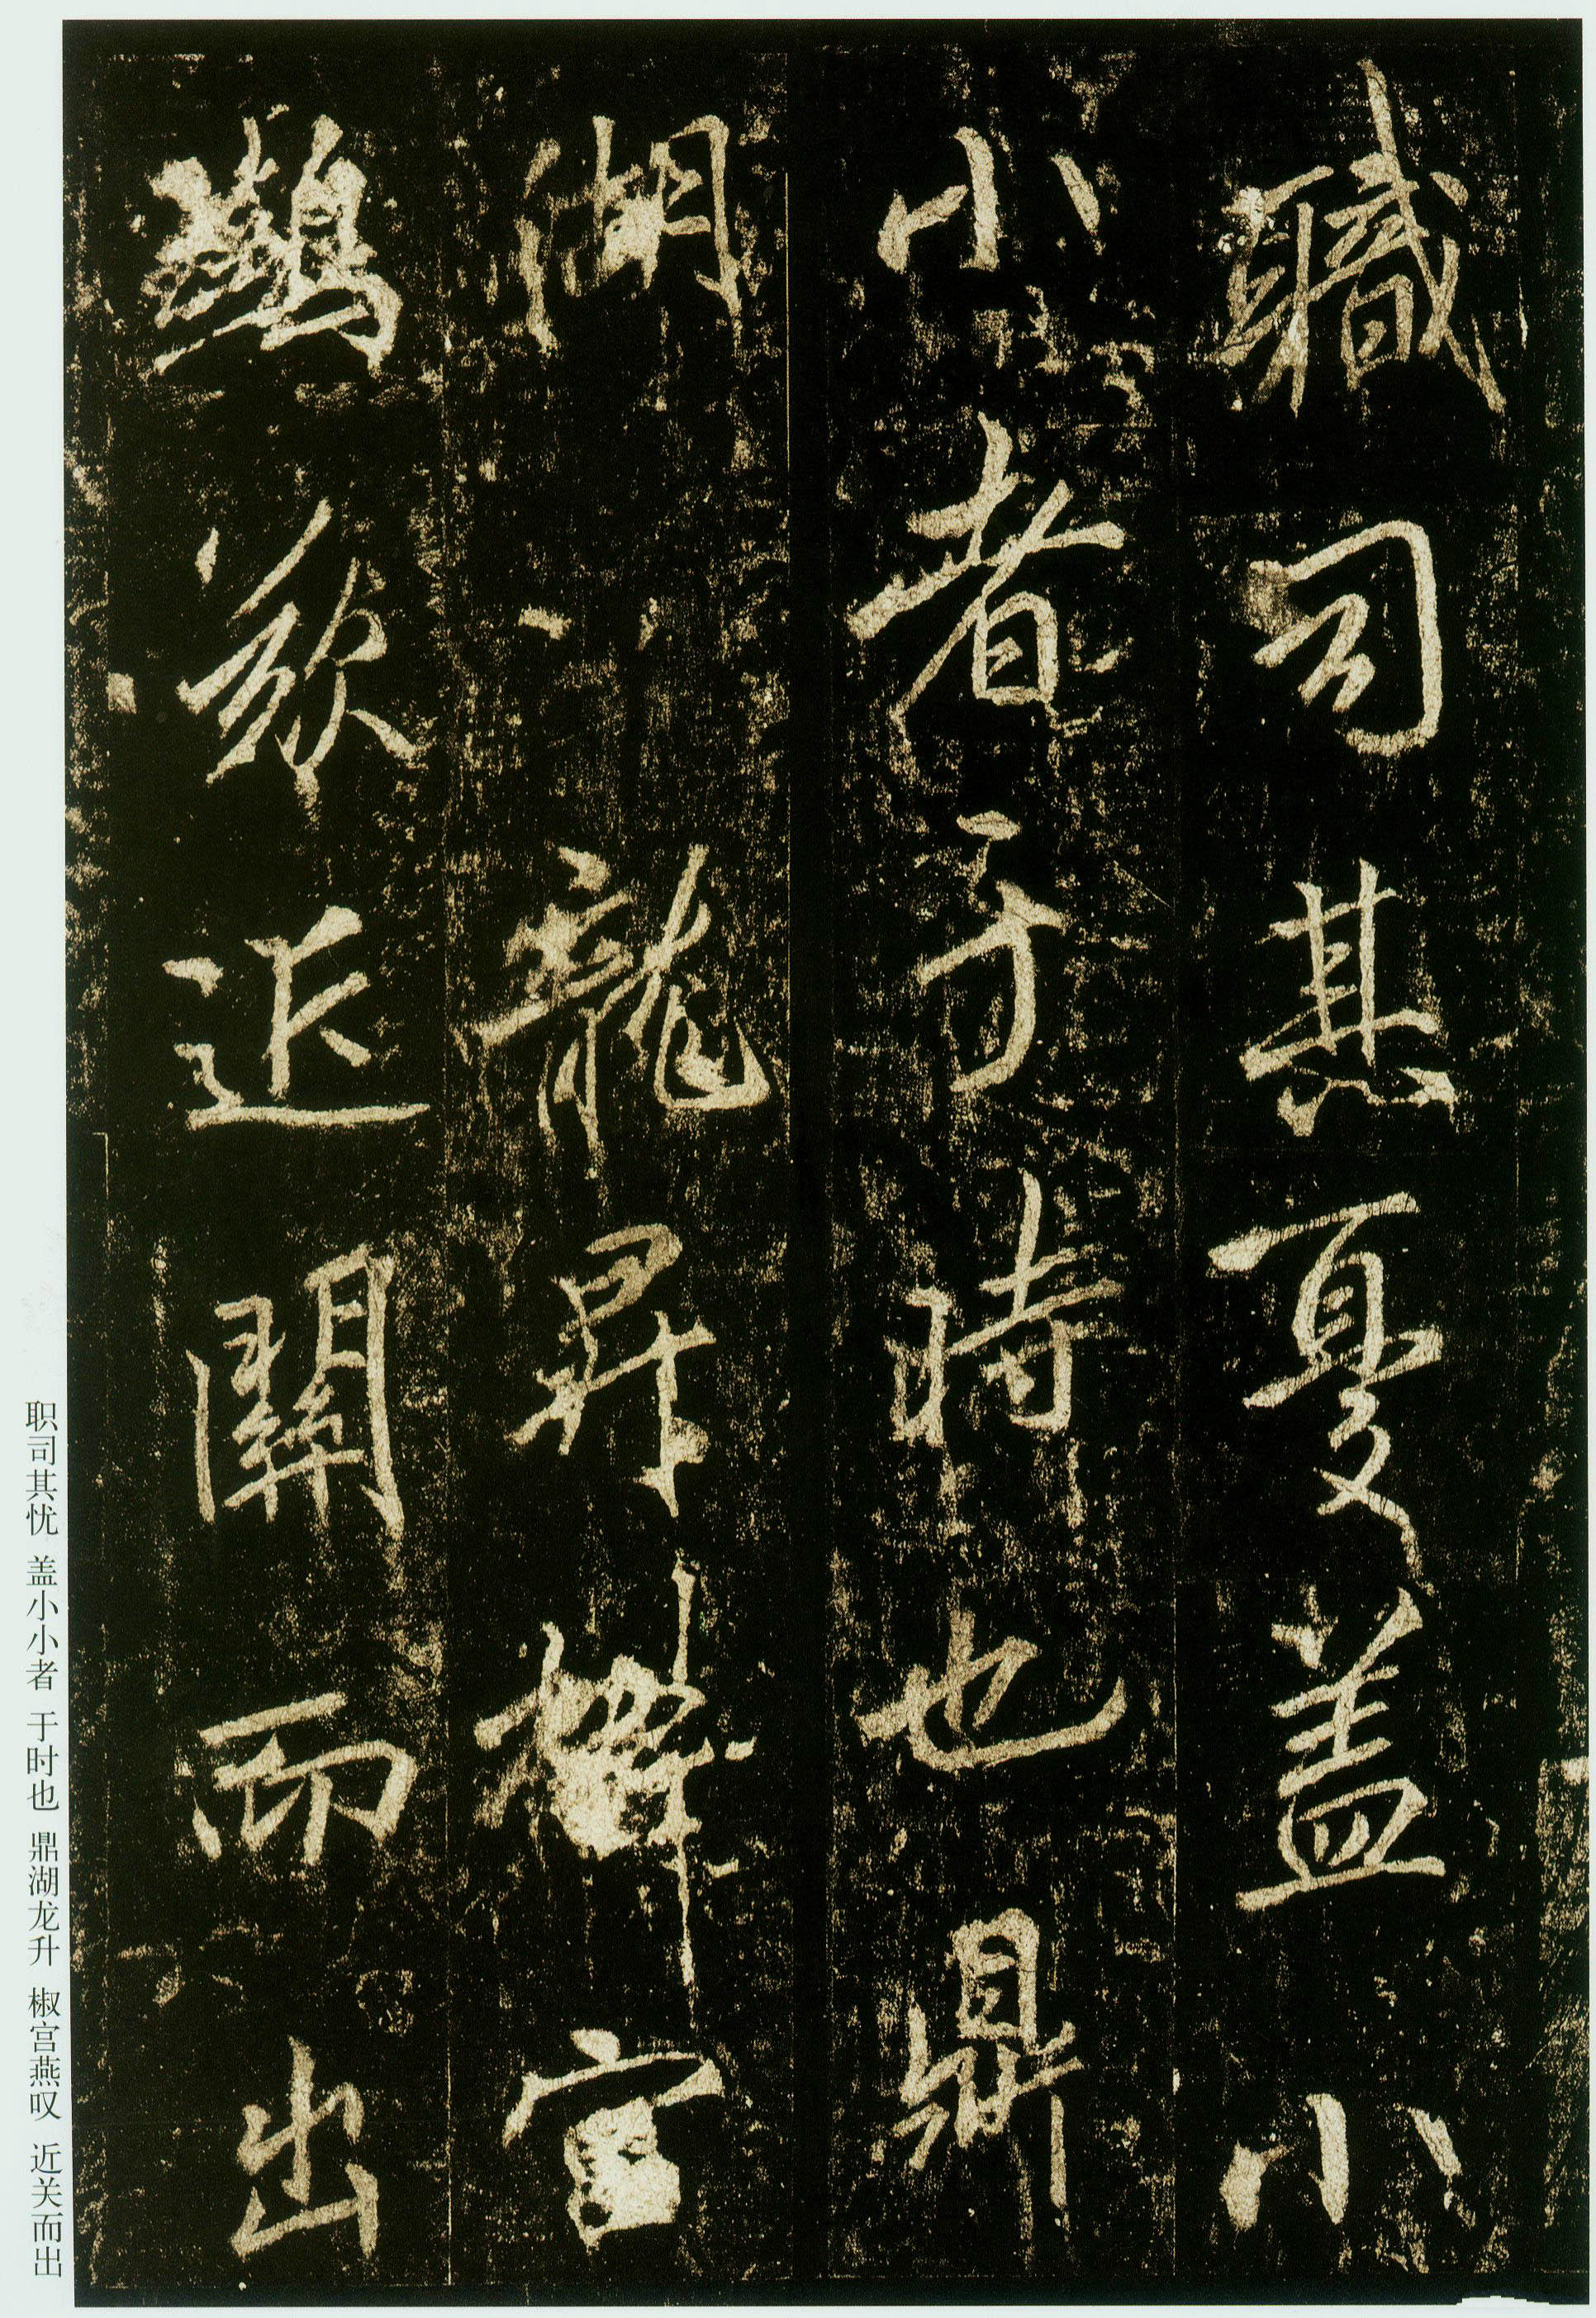 職司其憂盖小
小者于時也鼎
湖龍昇椒宮
鷰歎近關而出
职司其忧 盖小小者 于时也 鼎湖龙升 椒宫燕叹 近关而出